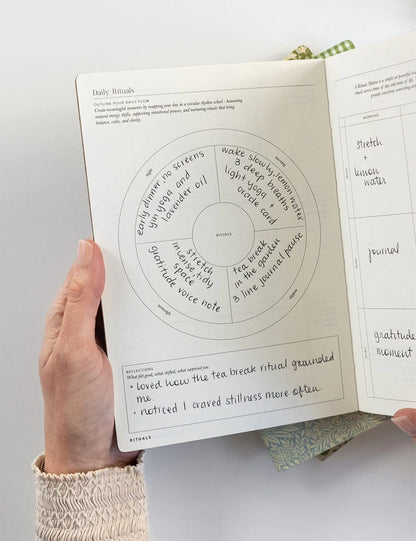 Daily Rituals
OUTLINE YOUR DAILY FLOW
Create meaningful moments by mapping your day in a circular rhythm wheel - honouring
natural energy shifts, supporting intentional pauses, and nurturing rituals that bring
balance, calm, and clarity.
night
early dinner, no screens
yin yoga and
lavender oil
morning
wake slowly, lemon water
3 deep breaths
light yoga +
oracle card
RITUALS
afternoon
stretch
incense, tidy
space
gratitude voice note
daytime
tea break
in the garden
3 line journal pause
REFLECTIONS
What felt good, what shifted, what surprised you.
• loved how the tea break ritual grounded
me.
• noticed I craved stillness more often.
RITUALS
A Rituals Matrix is a simple yet powerful
rituals across times of day and areas of life.
MORNING
stretch
+
lemon
water
journal
gratitude
moment